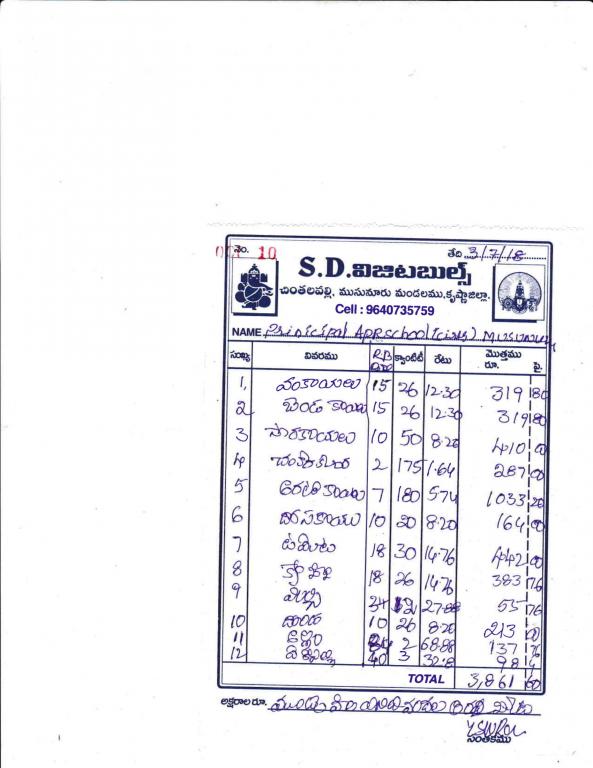 నెం. 10 తేది 3/7/18
S.D.విజిటబుల్స్
చింతలవల్లి, ముసునూరు మండలము, కృష్ణాజిల్లా.
Cell : 9640735759
NAME Prinicipal APRSchool MUSUNURU
సంఖ్య వివరము క్వాంటిటీ రేటు మొత్తము రూ. పై.
1, వంకాయలు 15 26 12.30 319 80
2 బెండకాయలు 15 26 12.30 319 80
3 సొరకాయలు 10 50 8.20 410 00
4 2 175 1.64 287 00
5 అరటికాయలు 7 180 5.74 1033 20
6 దోసకాయలు 10 20 8.20 164 00
7 టమాటా 18 30 14.76 442 00
8 18 26 14.76 383 76
9 మిర్చి 34 27.88 55 76
10 దొండ 10 26 8.20 213 00
11 అల్లం 2 68.88 137 76
12 40 3 32.8 98
TOTAL 3,861 60
అక్షరాల రూ.
సంతకము